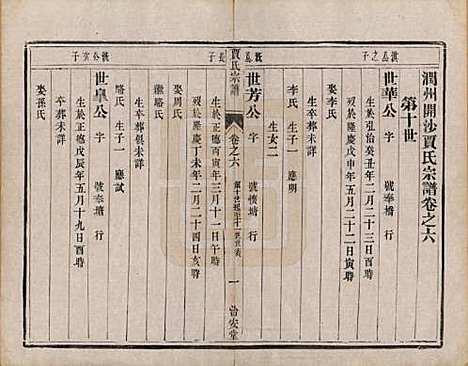 潤州開沙賈氏宗譜卷之六
第十世
世華公 字 號奉橋 行
生於弘治癸丑年二月二十三日寅時
歿於隆慶戊申年五月二十一日寅時
娶李氏 生子一 應明
生女二
世芳公 字 號懷塘 行
生於正德 寅年三月十一日午時
歿於隆慶丁未年二月二十四日亥時
娶周氏
繼殷氏 生卒葬俱未詳
駱氏 生子一 應試
世臯公 字 號奉塘 行
生於正德戊辰年五月十九日酉時
卒葬未詳
娶孫氏
賈氏宗譜
卷之六
一
曾安堂